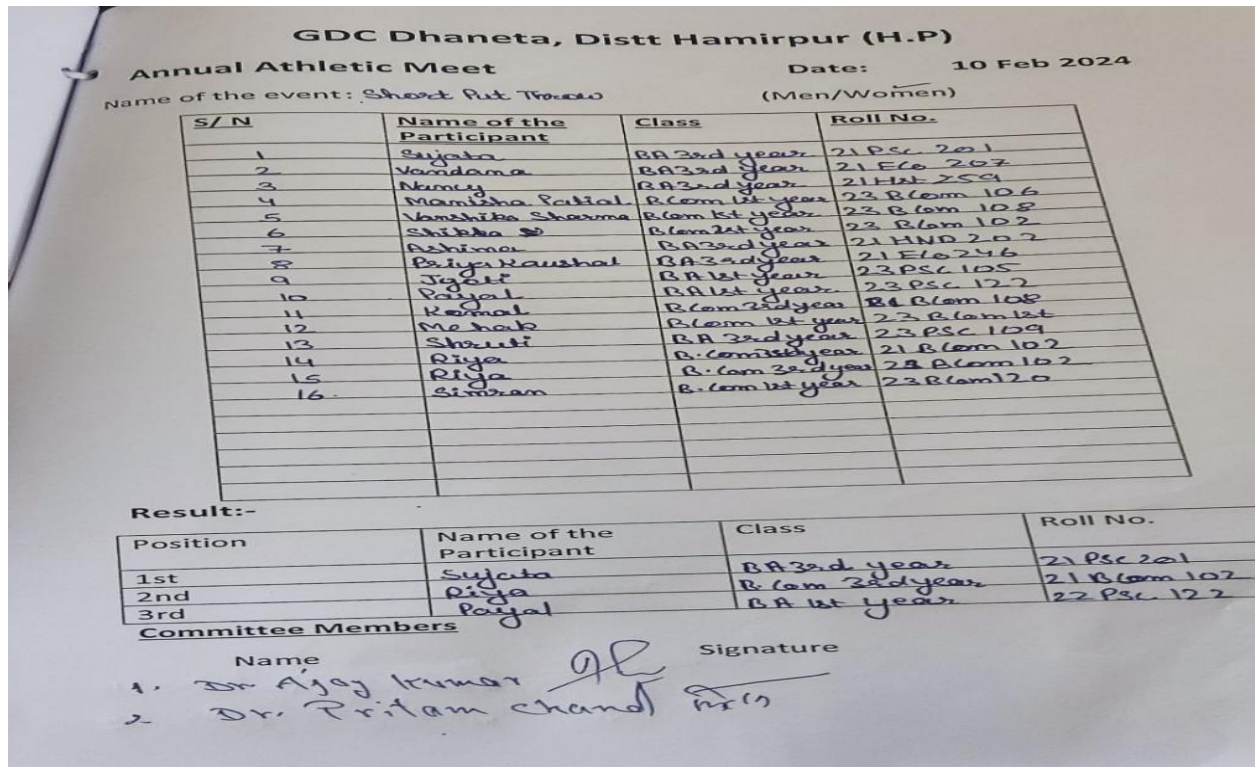 GDC Dhaneta, Distt Hamirpur (H.P)
Annual Athletic Meet Date: 10 Feb 2024
Name of the event: Short Put Throw (Men/Women)
S/ N Name of the Participant Class Roll No.
1 Sujata BA 3rd year 21 PSC 201
2 Vandana BA 3rd Year 21 ECO 207
3 Nancy BA 3rd year 21 Hst 259
4 Manisha Patial B.Com 1st year 23 BCom 106
5 Vanshika Sharma B.Com 1st year 23 B.Com 108
6 Shikha B.Com 1st year 23 BCom 102
7 Ashima BA 3rd year 21 HND 202
8 Priya Kaushal BA 3rd year 21 ECO 246
9 Jyoti BA 1st year 23 PSC 105
10 Payal BA 1st year 23 PSC 122
11 Komal B.Com 3rd year BCom 108
12 Mehak B.Com 1st year 23 BCom 1st
13 Shruti BA 3rd year 23 PSC 109
14 Riya B.Com year 21 BCom 102
15 Riya B.Com 3rd year BCom 102
16. Simran B.Com 1st year 23 BCom 120
Result:-
Position Name of the Participant Class Roll No.
1st Sujata BA 3rd year 21 PSC 201
2nd Riya B.Com 3rd year 21 BCom 102
3rd Payal BA 1st year 22 PSC 122
Committee Members
Name Signature
1. Dr Ajay Kumar
2 Dr. Pritam Chand